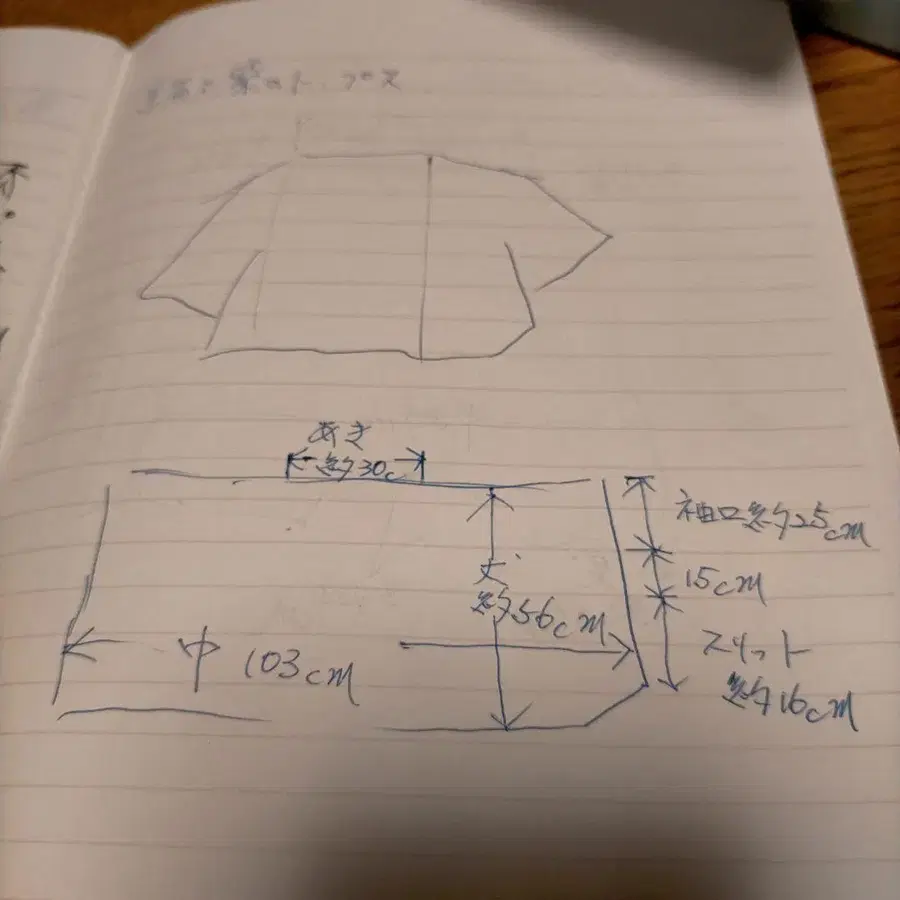 あき
約30c
袖口約25cm
丈
約56cm
15cm
巾 103cm
スリット
約16cm